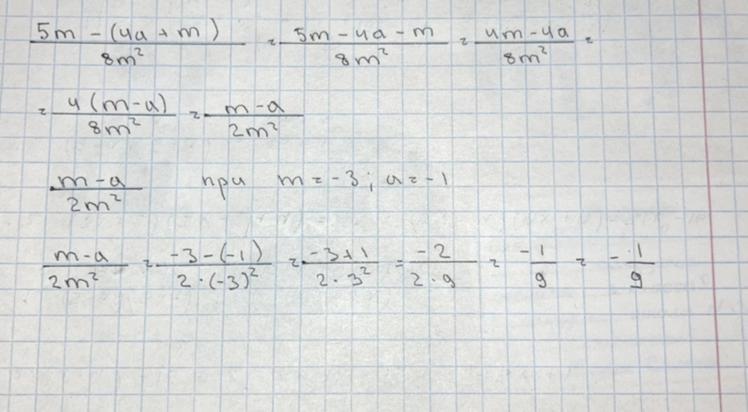 (5m - (4a + m))/(8m²) = (5m - 4a - m)/(8m²) = (4m - 4a)/(8m²) =
= (4(m - a))/(8m²) = (m - a)/(2m²)
(m - a)/(2m²) при m = -3; a = -1
(m - a)/(2m²) = (-3 - (-1))/(2 · (-3)²) = (-3 + 1)/(2 · 3²) = (-2)/(2 · 9) = (-1)/9 = -1/9